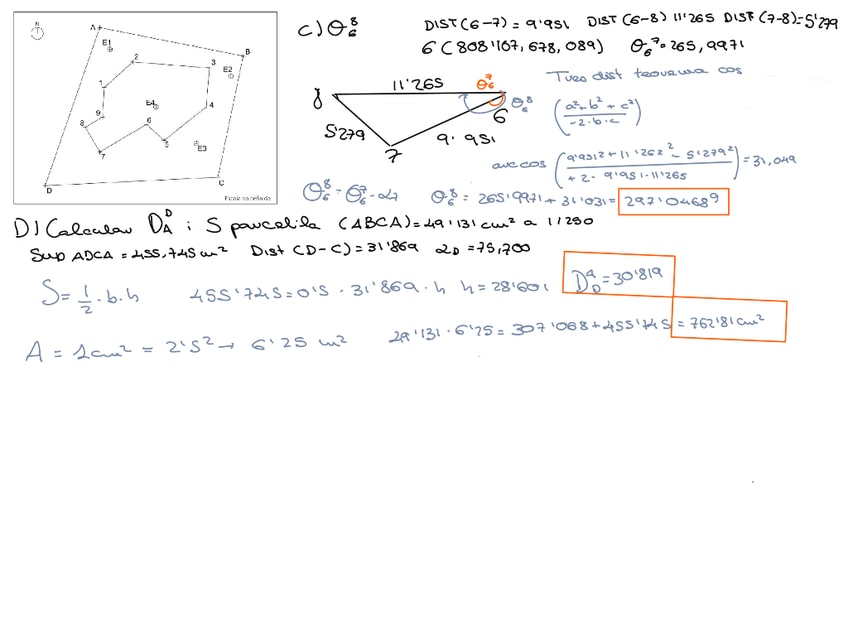 N
A
E1
B
2
3
E2
1
E4
4
9
8
6
5
E3
7
D
C
Escala no definida
c) θ₆⁸
DIST (6-7) = 9'951 DIST (6-8) 11'265 DIST (7-8) = 5'279
6 (808'107, 678, 089) θ₆⁷ = 265,9971
Tres dist teorema cos
(a² + b² + c² / -2·b·c)
8
11'265
θ₆⁷
θ₆⁸
6
5'279
9'951
7
arccos (9'951² + 11'262² - 5'279² / +2· 9'951·11'265) = 31,049
θ₆⁸ = θ₆⁷ - α7 θ₆⁸ = 265'9971 + 31'031 = 297'0468⁹
D) Calcular D_A^D ; S parcelila (ABCA) = 49'131 cm² a 1/250
Sup ADCA = 455.745 m² Dist (D-C) = 31'869 α_D = 75,700
S = 1/2 · b·h 455'745 = 0'5 · 31'869 · h h = 28'601 D_D^A = 30'819
49'131 · 6'25 = 307'068 + 455'745 = 762'81 cm²
A = 1 cm² = 2'5² → 6'25 m²